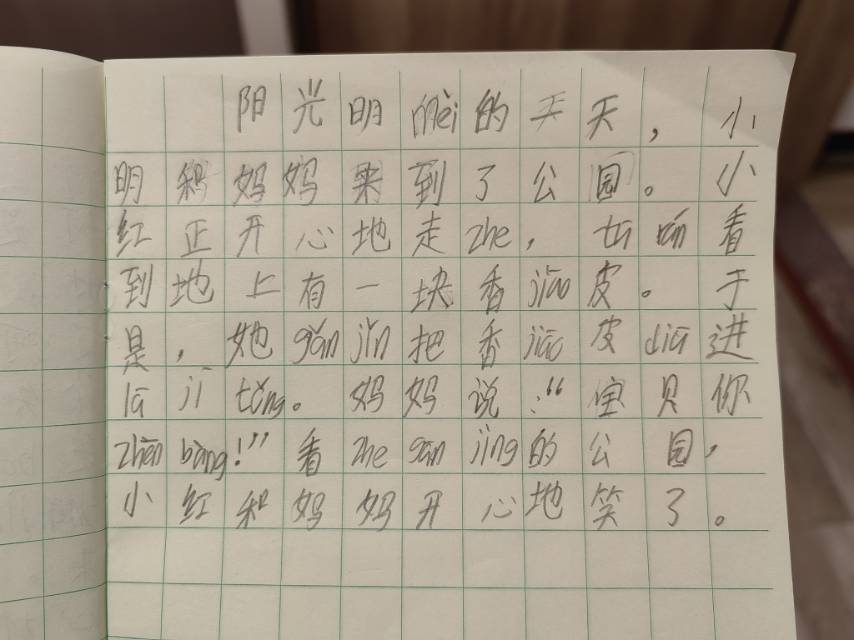 阳光明mèi的一天，小
明和妈妈来到了公园。小
红正开心地走zhe，tū rán看
到地上有一块香jiāo皮。于
是，她gǎn jǐn把香jiāo皮diū进
lā jī tǒng。妈妈说：“宝贝你
zhēn bàng！”看zhe gān jìng的公园，
小红和妈妈开心地笑了。